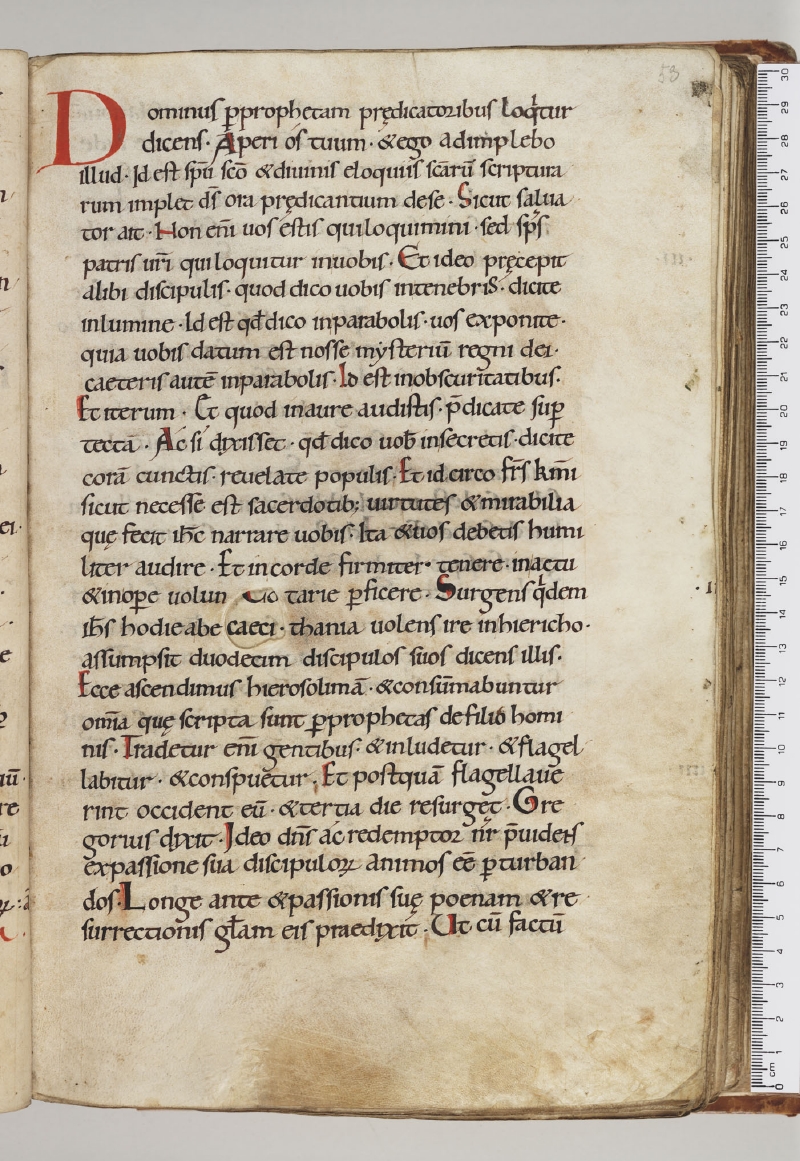 53
Dominus ꝑprophetam prędicatoribus loq̇tur
dicens· Aperi os tuum· &ego adimplebo
illud· Id est sp̄u sc̄o &diuinis eloquiis sc̄arū scriptura
rum implet ds̄ ora prędicantium dese· Sicut salua
tor ait· Non eni̅ uos estis quiloquimini· sed sp̄s
patris ur̄i quiloquitur inuobis· Et ideo pręcepit
alibi discipulis· quod dico uobis intenebris· dicite
inlumine· Id est qđ dico inparabolis· uos exponite·
quia uobis datum est nosse mysteriū regni dei·
caeteris autē inparabolis· Id est inobscuritatibus·
Et iterum· Et quod inaure audistis· p̄dicate suꝑ
tecta· Ac si dixisset· qđ dico uob̄ insecretis· dicite
corā cunctis· reuelate populis· Et idcirco fr̄s km̄i
sicut necesse est sacerdotib; uirtutes &mirabilia
quę fecit ih̄c narrare uobis· Ita &uos debetis humi
liter audire· Et incorde firmiter· tenere· inactu
&inoꝑe uolun tarie ꝑficere· Surgens q̇dem
ih̄s hodie abe caeci· thania uolens ire inhiericho·
assumpsit duodecim discipulos suos dicens illis·
Ecce ascendimus hierosolimā· &consūmabuntur
om̄ia quę scripta sunt ꝑprophetas defilio homi
nis· Tradetur eni̅ gentibus· &inludetur· &flagel
labitur· &conspuetur· Et postquā flagellaue
rint occident eū· &tertia die resurget· Gre
gorius dixit· Ideo dn̄s ac redemptor nr̄ p̄uidens
expassione sua discipuloꝝ animos eē ꝑturban
dos· Longe ante &passionis suę poenam &re
surrectionis gl̄am eis praedixit· Ut cū factū